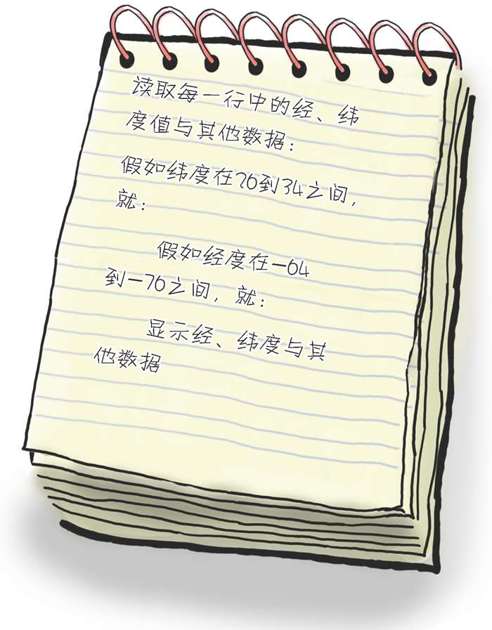 读取每一行中的经、纬
度值与其他数据：
假如纬度在26到34之间，
就：
假如经度在-64
到-76之间，就：
显示经、纬度与其
他数据